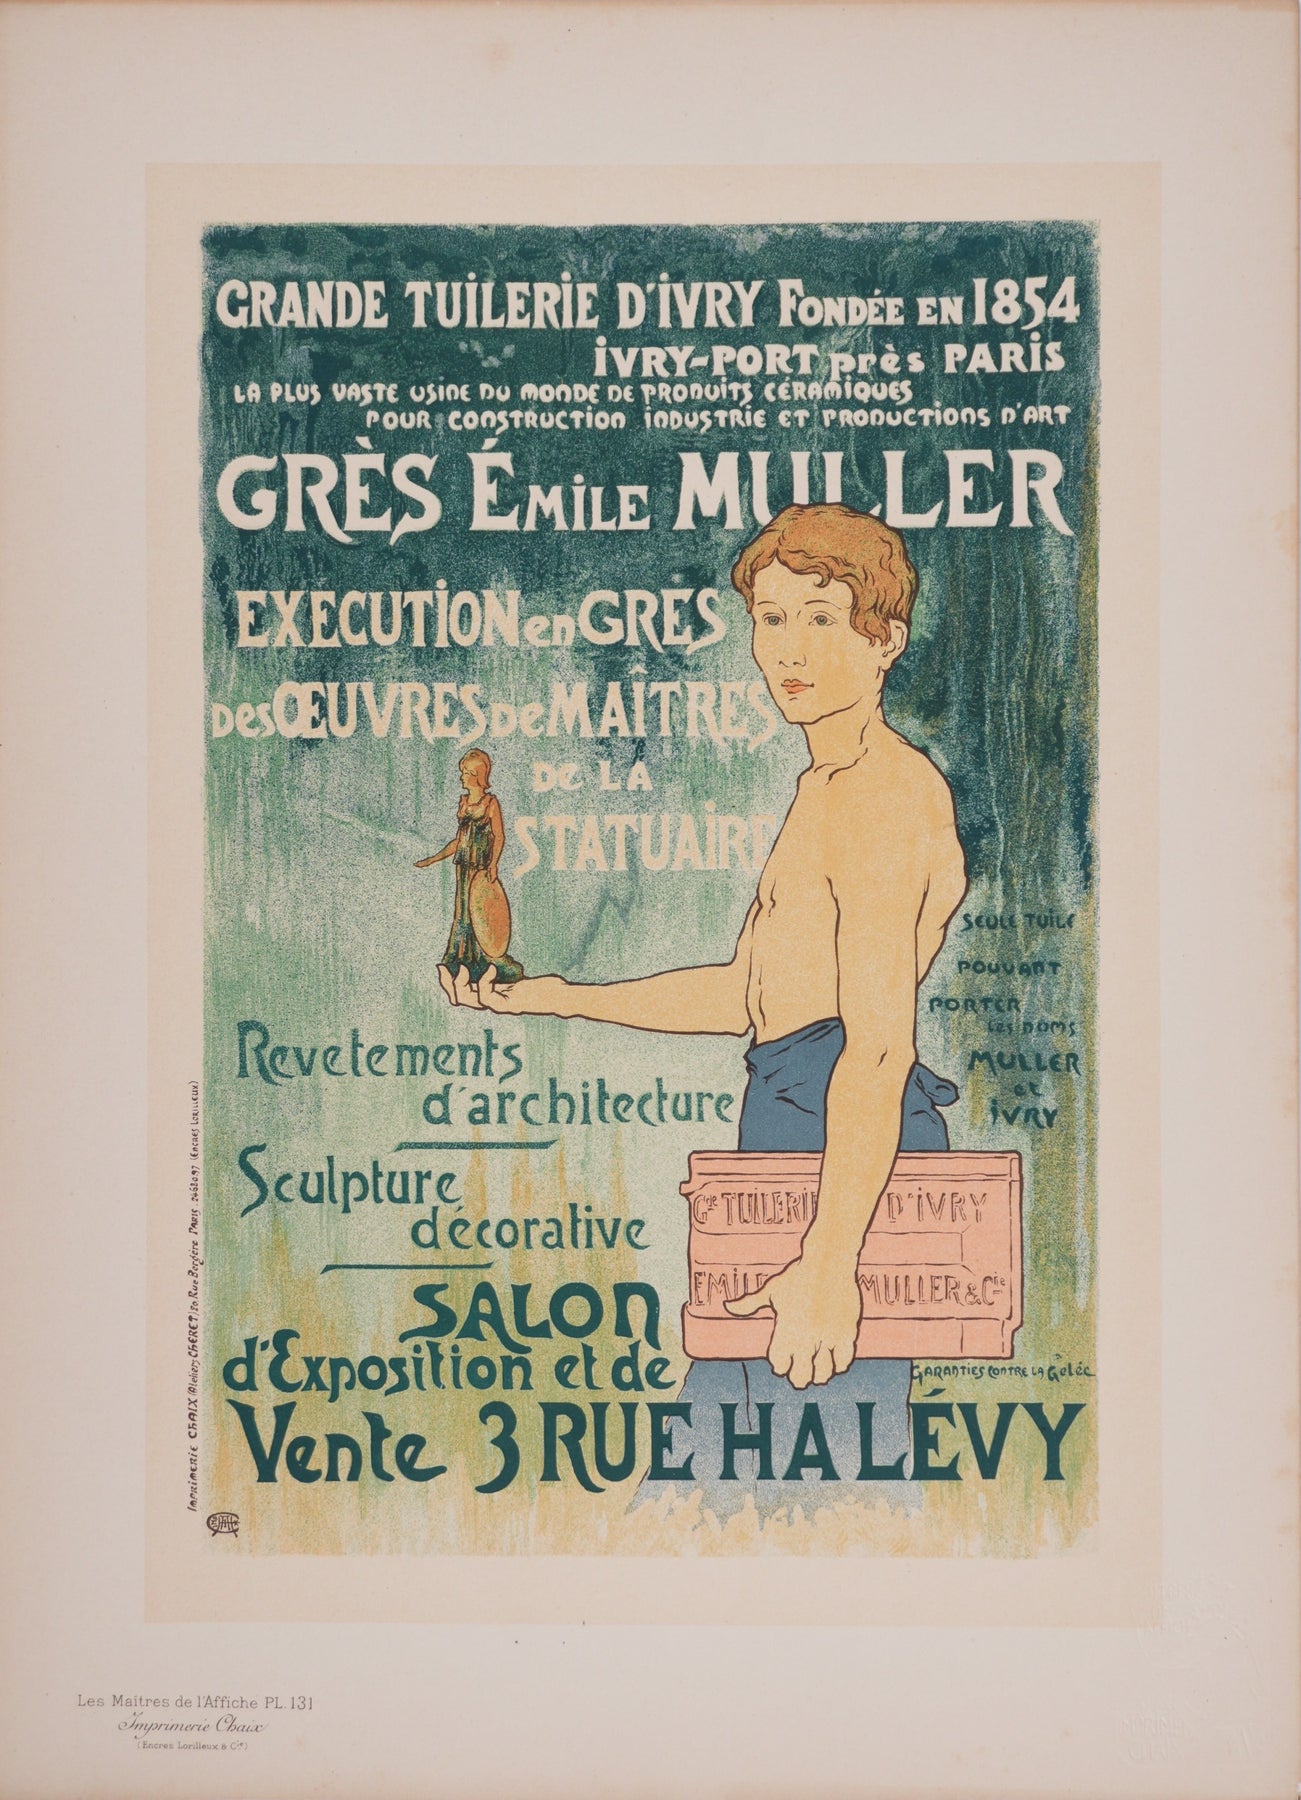 GRANDE TUILERIE D'IVRY FONDÉE EN 1854
IVRY-PORT près PARIS
LA PLUS VASTE USINE DU MONDE DE PRODUITS CÉRAMIQUES
POUR CONSTRUCTION INDUSTRIE ET PRODUCTIONS D'ART
GRÈS ÉMILE MULLER
EXECUTION en GRÈS
DES ŒUVRES DE MAÎTRES
DE LA
STATUAIRE
SEULE TUILE
POUVANT
PORTER
les noms
MULLER
et
IVRY
Revetements
d'architecture
Sculpture
décorative
Gde TUILERIE D'IVRY
EMILE MULLER & Cie
GARANTIES CONTRE LA Gelée
SALON
d'Exposition et de
Vente 3 RUE HALÉVY
IMPRIMERIE CHAIX (Ateliers CHERET) 20 Rue Bergère PARIS (Encres LORILLEUX)
Les Maîtres de l'Affiche PL. 131
Imprimerie Chaix
(Encres Lorilleux & Cie)